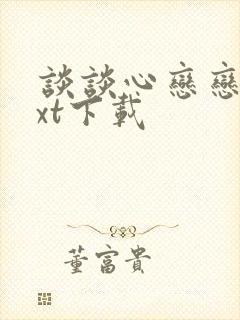 談談心戀戀
xt下載
董富貴